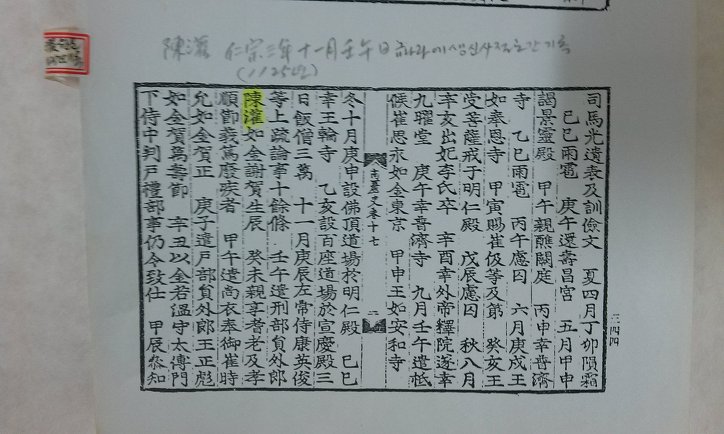 陳灌 仁宗三年 十一月 壬午日
(1125년)
司馬光遺表及訓儉文 夏四月丁卯隕霜
己巳雨雹 庚午還壽昌宮 五月甲申
謁景靈殿 甲午親醮闕庭 丙申幸普濟
寺 乙巳雨雹 丙午慮囚 六月庚戌王
如奉恩寺 甲寅賜崔伋等及第 癸亥王
受菩薩戒于明仁殿 戊辰慮囚 秋八月
辛亥出妃李氏卒 辛酉幸外帝釋院遂幸
九曜堂 庚午幸普濟寺 九月壬午遣祗
候崔思永如金東京 甲申王如安和寺
高麗史卷十七 二
冬十月庚申設佛頂道場於明仁殿 己巳
幸王輪寺 乙亥設百座道場於宣慶殿三
日飯僧三萬 十一月庚辰左常侍康英俊
等上疏論事十餘條 壬午遣刑部員外郎
陳灌如金謝賀生辰 癸未親享耆老及孝
順節義篤廢疾者 甲午遣尚衣奉御崔時
允如金賀正 庚子遣戶部員外郎王正彪
如金賀萬壽節 辛丑以金若溫守太傅門
下侍中判戶禮部事仍令致仕 甲辰參知
三四四